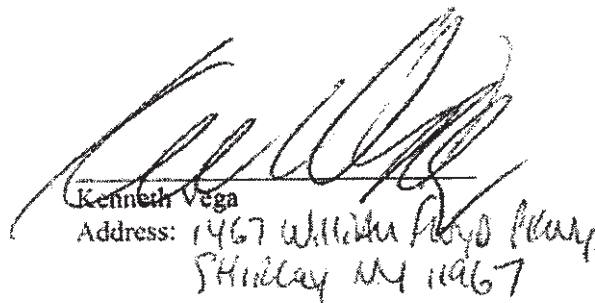 Kenneth Vega
Address: 1467 William Floyd Pkwy
Shirley NY 11967